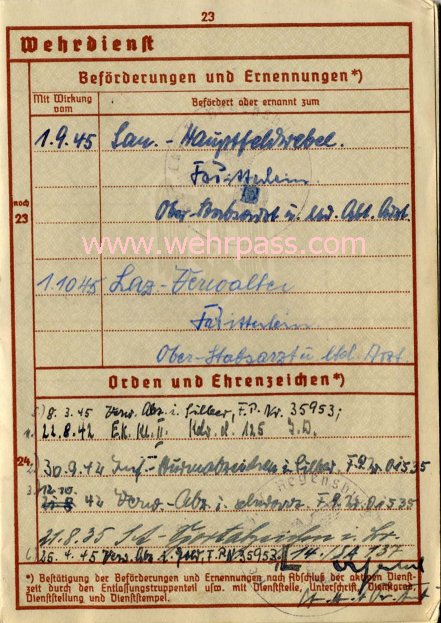 23
Wehrdienst
Beförderungen und Ernennungen*)
Mit Wirkung vom
Befördert oder ernannt zum
1.9.45 San.-Hauptfeldwebel.
noch 23
Ober-Stabsarzt u. ltd. Abt. Arzt
www.wehrpass.com
1.10.45 Laz-Verwalter
Ober-Stabsarzt u. ltd. Arzt.
Orden und Ehrenzeichen*)
8.3.45 Verw. Abz. i. Silber, F.P. Nr. 35953;
1. 22.8.42 E.K. Kl. II. Kdr. d. 125 J.D.
24
30.9.42 Inf.-Sturmabzeichen i. Silber F.P. Nr. 01535
3. 12.10. 42 Verw.-Abz. i. schwarz F.P. Nr. 01535
21.8.35 S.A. Sportabzeichen i. Br.
25.4.45 Verw. Abz. i. Gold F.P.N 35953
*) Bestätigung der Beförderungen und Ernennungen nach Abschluß der aktiven Dienst-
zeit durch den Entlassungstruppenteil usw. mit Dienststelle, Unterschrift, Dienstgrad,
Dienststellung und Dienststempel.